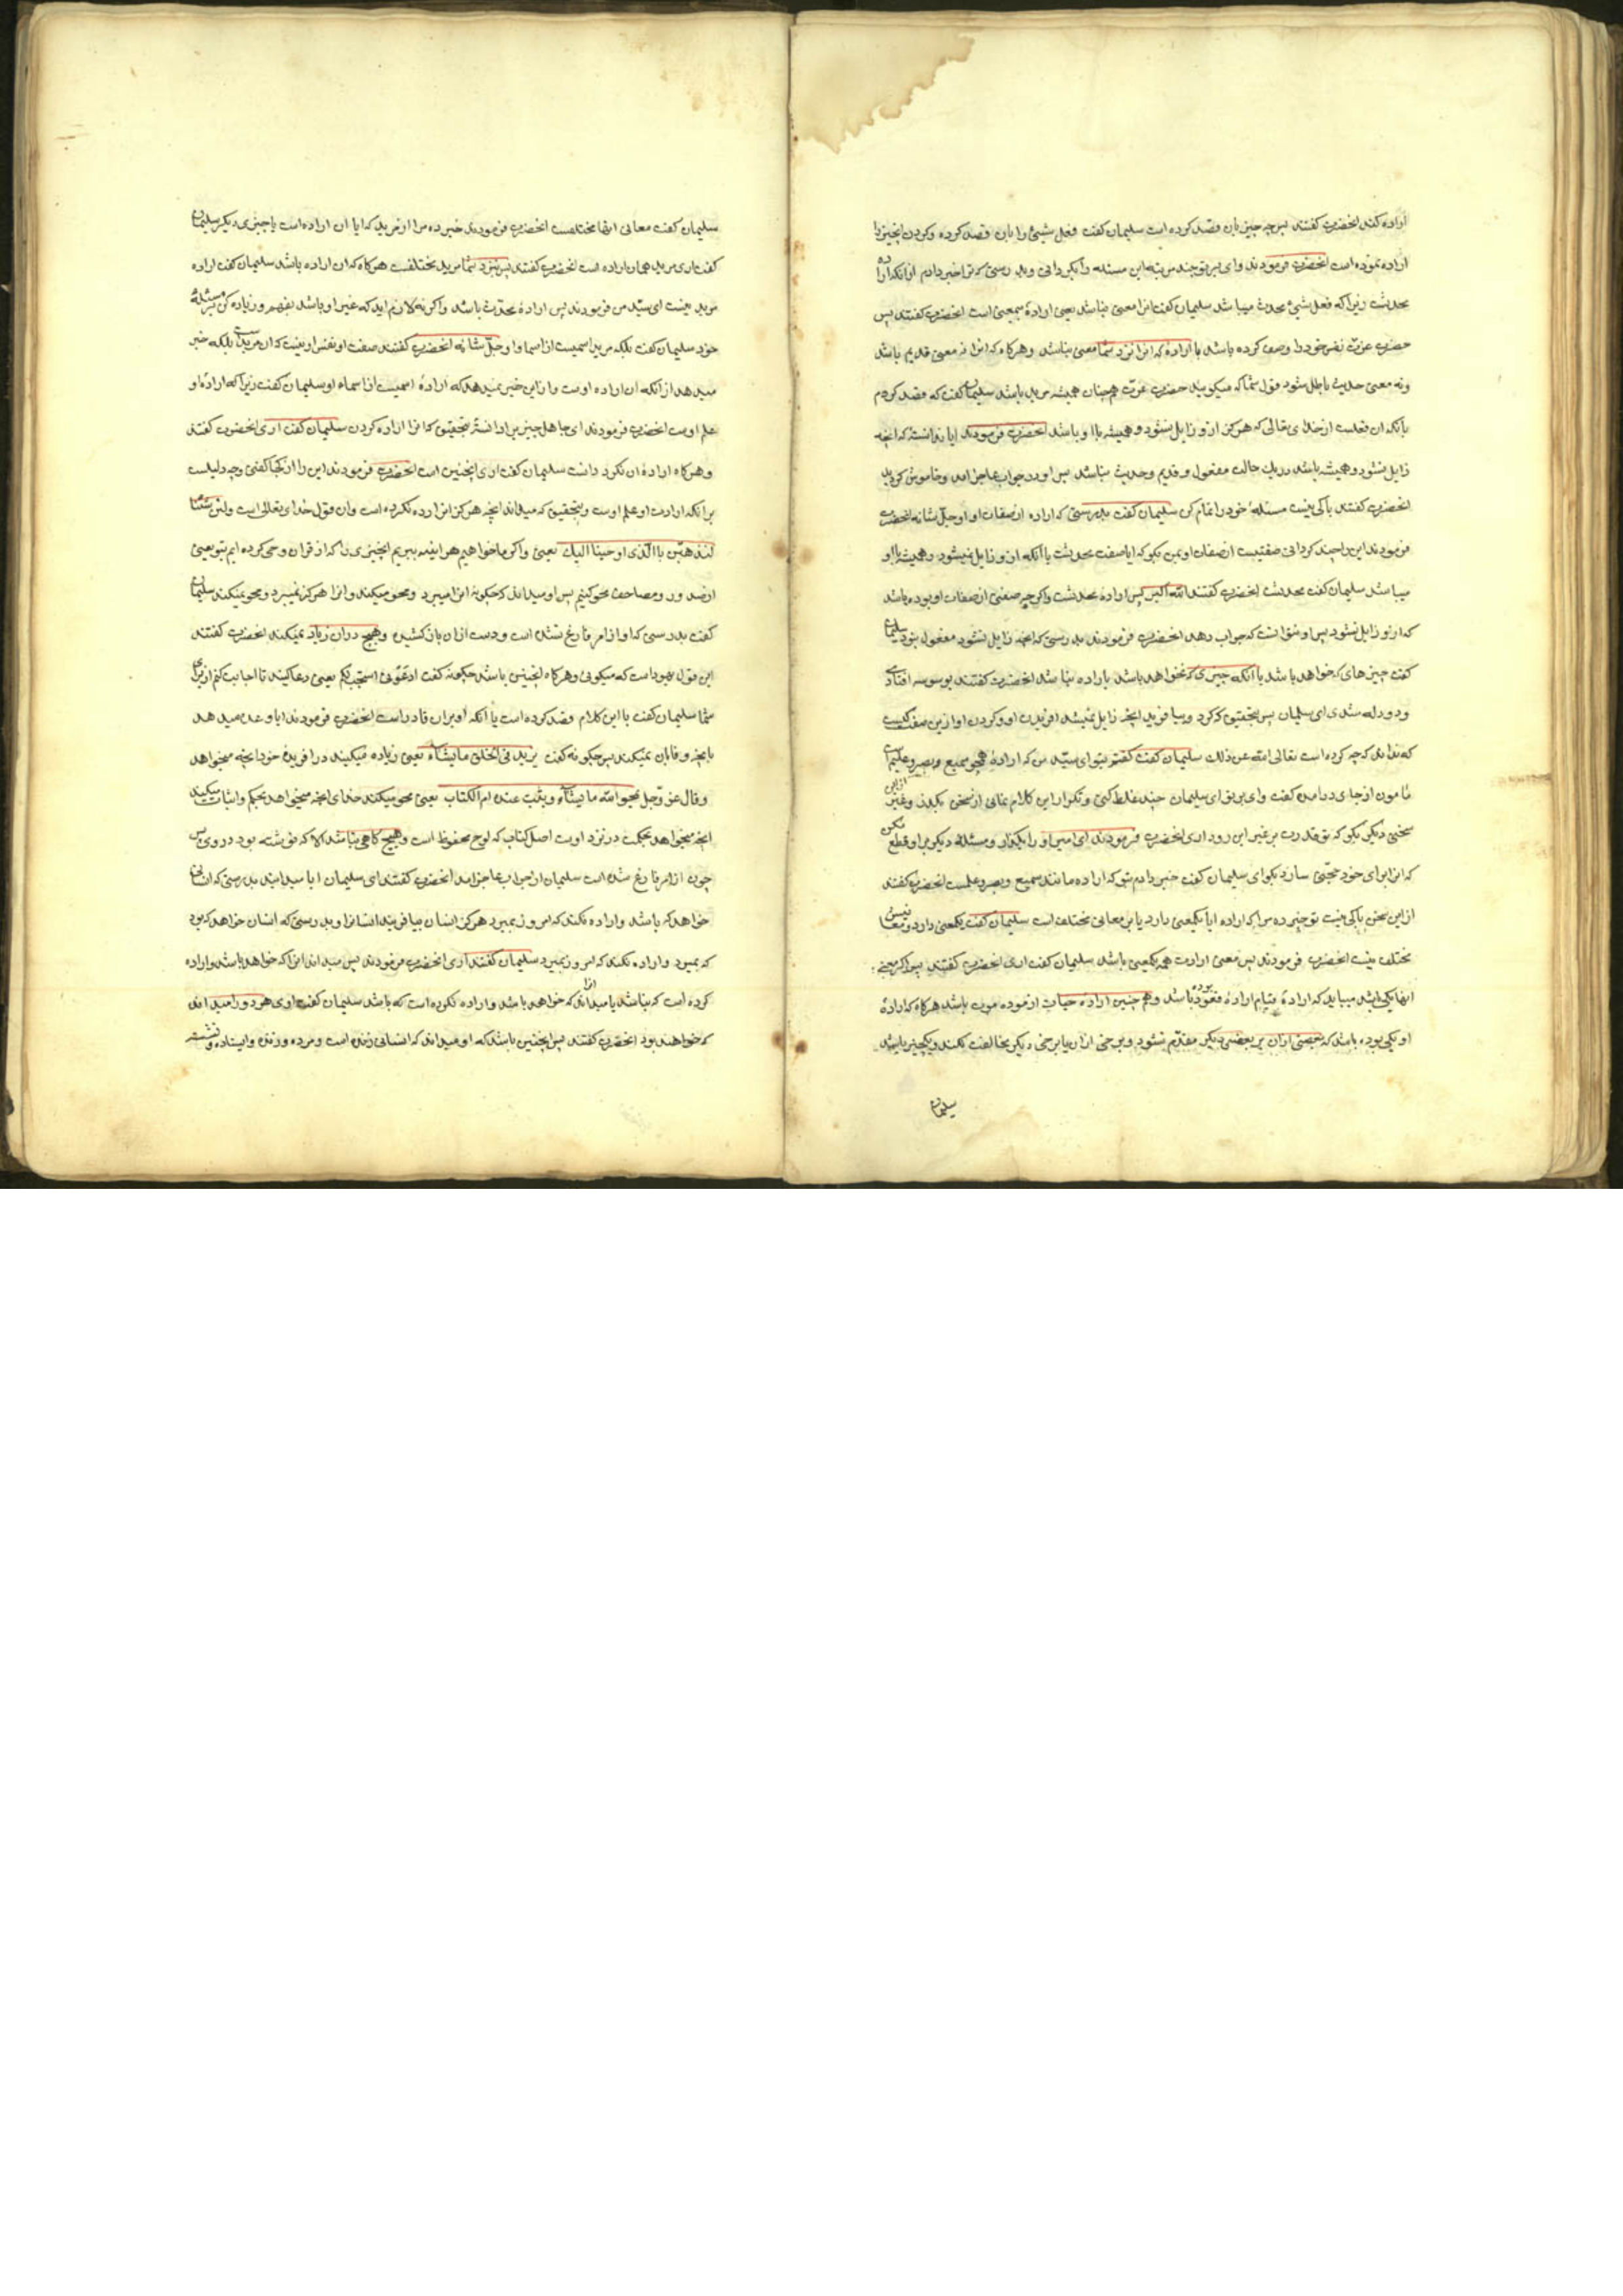 اراده کند انحضرت کفتند بس چه چیز بان قصد کرده است سلیمان کفت فعل شیئ را بان قصد کرده و کردن انچیز را
اراده نموده است انحضرت فرمودند وای بر تو چند مرتبه این مسئله را میکردانی و بدرستی که ترا خبر دادم از انکه اراده
محدثت زیرا که فعل شیئ محدث میباشد سلیمان کفت انرا معنی نباشد یعنی ارادهٔ بیمعنی است انحضرت کفتند پس
حضرت عزت نفس خود را وصف کرده باشد با ارادهٔ که انرا نزد شما معنی نباشد و هرکاه که انرا نه معنی قدیم باشد
و نه معنی حدیث باطل شود قول شما که میکویید حضرت عزت همچنان همیشه مرید باشد سلیمان کفت که قصد کردم
بانکه ان فعلست از خدای تعالی که هرکز از و زایل نشود و همیشه با او باشد انحضرت فرمودند ایا ندانسته که انچه
زایل نشود و همیشه باشد در یك حالت مفعول و قدیم و حدیث نباشد بس او در جواب عاجز امد و خاموش کردید
انحضرت کفتند باکی نیست مسئلهٔ خود را تمام کن سلیمان کفت بدرستی که اراده از صفات او او جلّ شانه انحضرت
فرمودند این را چند کردانی صفتیست از صفات او بمن بکو که ایا صفت محدثت یا انکه از و زایل نمیشود و همیشه با او
میباشد سلیمان کفت محدثت انحضرت کفتند الله اکبر پس ارادهٔ محدثت و اکر چه صفتی از صفات او بوده باشد
که از و زایل نشود پس او نتوانست که جواب دهد انحضرت فرمودند بدرستی که انچه زایل نشود مفعول نبود سلیمان
کفت چیزهای که خواهد باشد یا انکه چیزی که نخواهد باشد باراده نباشد انحضرت کفتند بوسوسه افتادی
و دو دله شدی ای سلیمان پس بتحقیق که کرد و بیافرید انچه زایل نمیشد افریدن او و کردن او و این صفت کیست
که نداند که چه کرده است تعالی الله عن ذلك سلیمان کفت کفتم بتو ای سیّد من که ارادهٔ همچو سمیع و بصیر و علیم است
مامون از جای درامد کفت وای بر تو ای سلیمان چند غلط کنی و تکرار این کلام نمائی از سخن بکذر و غیر از این
سخنی دیکر بکو که تو قدرت بر غیر این رد نداری انحضرت فرمودند ای امیر او را بکذار و مسئلهٔ دیکر بر او قطع مکن
که انرا برای خود حجّتی سازد بکو ای سلیمان کفت خبر دادم بتو که اراده مانند سمیع و بصیر و علیمست انحضرت کفتند
از این سخن باکی نیست تو خبر ده مرا که اراده ایا یکمعنی دارد یا بر معانی مختلف است سلیمان کفت یکمعنی دارد و معانی
مختلف نیست انحضرت فرمودند پس معنی ارادت همه یکمعنی باشد سلیمان کفت اری انحضرت کفتند پس اکر معنی
انها یکی باشد میباید که ارادهٔ قیام ارادهٔ قعود باشد و همچنین ارادهٔ حیات از موده موت باشد هرکاه که ارادهٔ
او یکی بوده باشد که بعضی ازان بر بعضی دیکر مقدّم نشود و برخی ازان با برخی دیکر مخالفت نکند و یکچیز باشد
سلیمان
سلیمان کفت معانی انها مختلفست انحضرت فرمودند خبر ده مرا از مرید که ایا ان اراده است یا چیزی دیکر سلیمان
کفت اری مرید همان اراده است انحضرت کفتند پس نزد شما مرید مختلفست هرکاه که ان اراده باشد سلیمان کفت اراده
مرید نیست ای سیّد من فرمودند پس ارادهٔ محدّث باشد و اکر نه لازم اید که غیر او باشد بفهم و زیاده کن بر مسئلهٔ
خود سلیمان کفت بلکه مرید اسمیست از اسماء او جلّ شانه انحضرت کفتند صفت او نفس او نیست که ان مرید است بلکه خبر
میدهد از انکه ان اراده اوست و ازاین خبر نمیدهد که ارادهٔ اسمیست از اسماء او سلیمان کفت زیرا که ارادهٔ او
علم اوست انحضرت فرمودند ای جاهل چیزیرا دانسته بتحقیق که انرا اراده کردن سلیمان کفت اری انحضرت کفتند
و هرکاه ارادهٔ ان نکرد دانست سلیمان کفت اری اینچنین است انحضرت فرمودند این را از کجا کفتی و چه دلیلست
برانکه ارادت او علم اوست و بتحقیق که میداند انچه هرکز انرا اراده نکرده است و ان قول خدای تعالی است ولئن شئنا
لنذهبّن باالّذی اوحینا الیك یعنی و اکر ما خواهیم هراینه ببریم انچیزی را که از قران وحی کرده ایم بتو یعنی
از صدور و مصاحف محو کنیم پس او میداند که چکونه انرا میبرد و محو میکند و انرا هرکز نمیبرد و محو نمیکند سلیمان
کفت بدرستی که او از امر فارغ شده است و دست ازان بازکشیده و هیچ دران زیاد نمیکند انحضرت کفتند
این قول یهود است که میکوئی و هرکاه اینچنین باشد چکونه کفت ادعونی استجب لکم یعنی دعا کنید تا اجابت کنم از برای
شما سلیمان کفت با این کلام قصد کرده است یا انکه او بران قادر است انحضرت فرمودند ایا وعده میدهد
بانچه وفا بان نمیکند پس چکونه کفت یزید فی الخلق مایشاء یعنی زیاده میکند در افریدهٔ خود انچه میخواهد
و قال عز وجل یمحوا الله ما یشاء و یثبت عنده ام الکتاب یعنی محو میکند خدای انچه میخواهد بحکم و اثبات میکند
انچه میخواهد بحکمت در نزد اوست اصل کتاب که لوح محفوظ است و هیچ کاهی نباشد الا که نوشته بود در وی پس
چون از امر فارغ شده است سلیمان از جواب عاجز امد انحضرت کفتند ای سلیمان ایا میداند بدرستی که انسانی
خواهد که باشد و اراده نکند که امروز بمیرد هرکز انسان بیافریند انسانرا و بدرستی که انسان خواهد که بود
که بمیرد و اراده نکند که امروز بمیرد سلیمان کفتند اری انحضرت فرمودند پس میداند انرا که خواهد باشد و اراده
کرده است که نباشد یا میداند انرا که خواهد باشد و اراده نکرده است که باشد سلیمان کفت اری هر دو را میداند
که خواهند بود انحضرت کفتند پس اینچنین باشد که او میداند که انسانی زنده است و مرده و زنده و ایستاده و نشسته